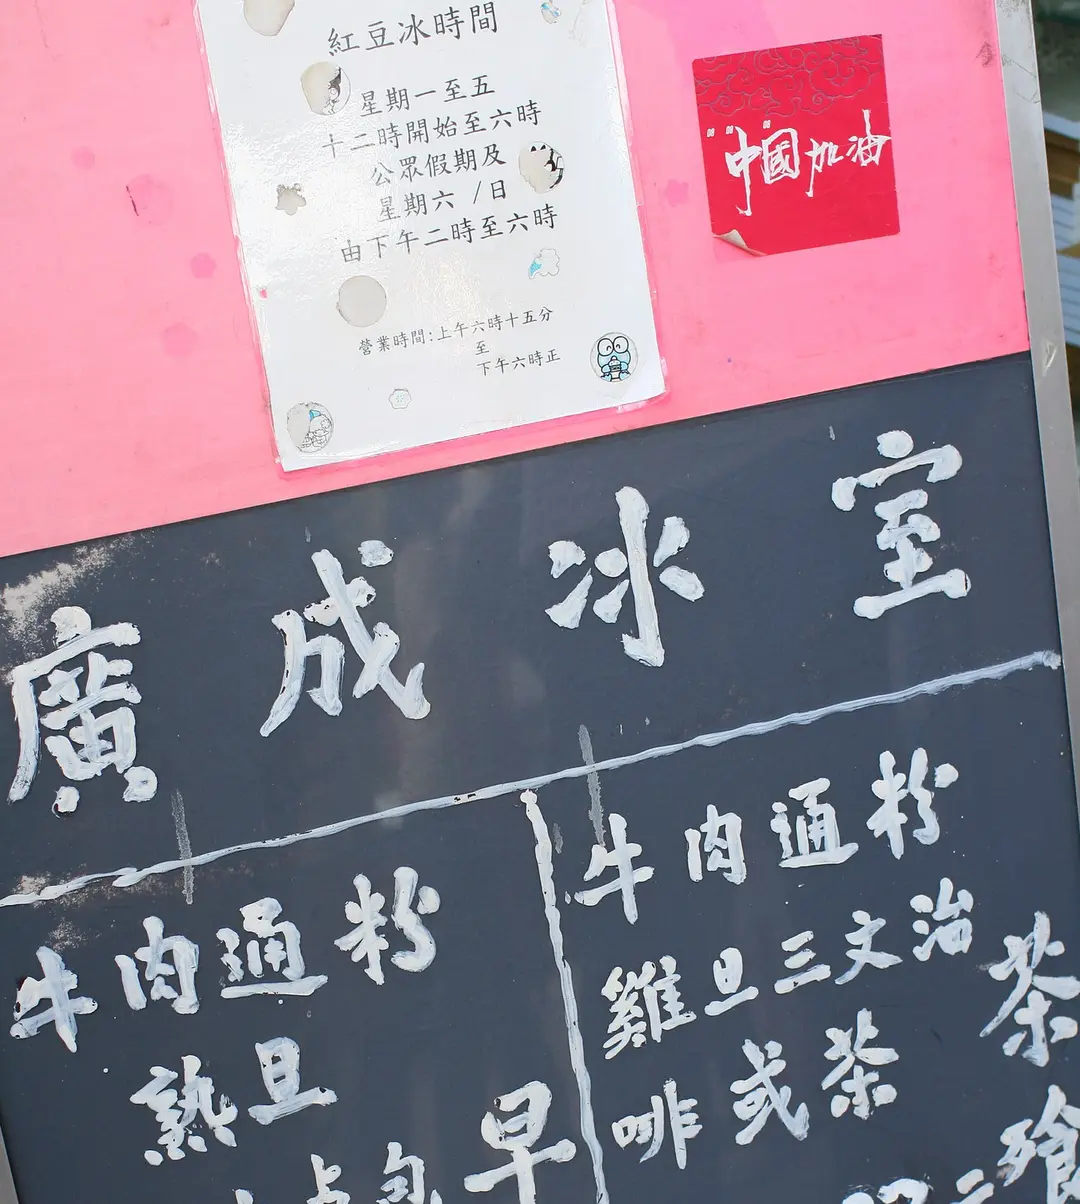 紅豆冰時間
星期一至五
十二時開始至六時
公眾假期及
星期六 / 日
由下午二時至六時
營業時間:上午六時十五分
至
下午六時正
"中國加油
廣成冰室
牛肉通粉
熟旦
早
牛肉通粉
雞旦三文治
啡或茶
茶